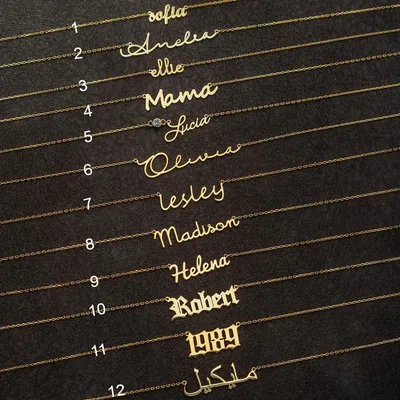 1 sofia
2 Amelia
3 ellie
4 Mama
5 Lucia
6 Olivia
7 Lesley
8 Madison
9 Helena
10 Robert
11 1989
12 مايكيل